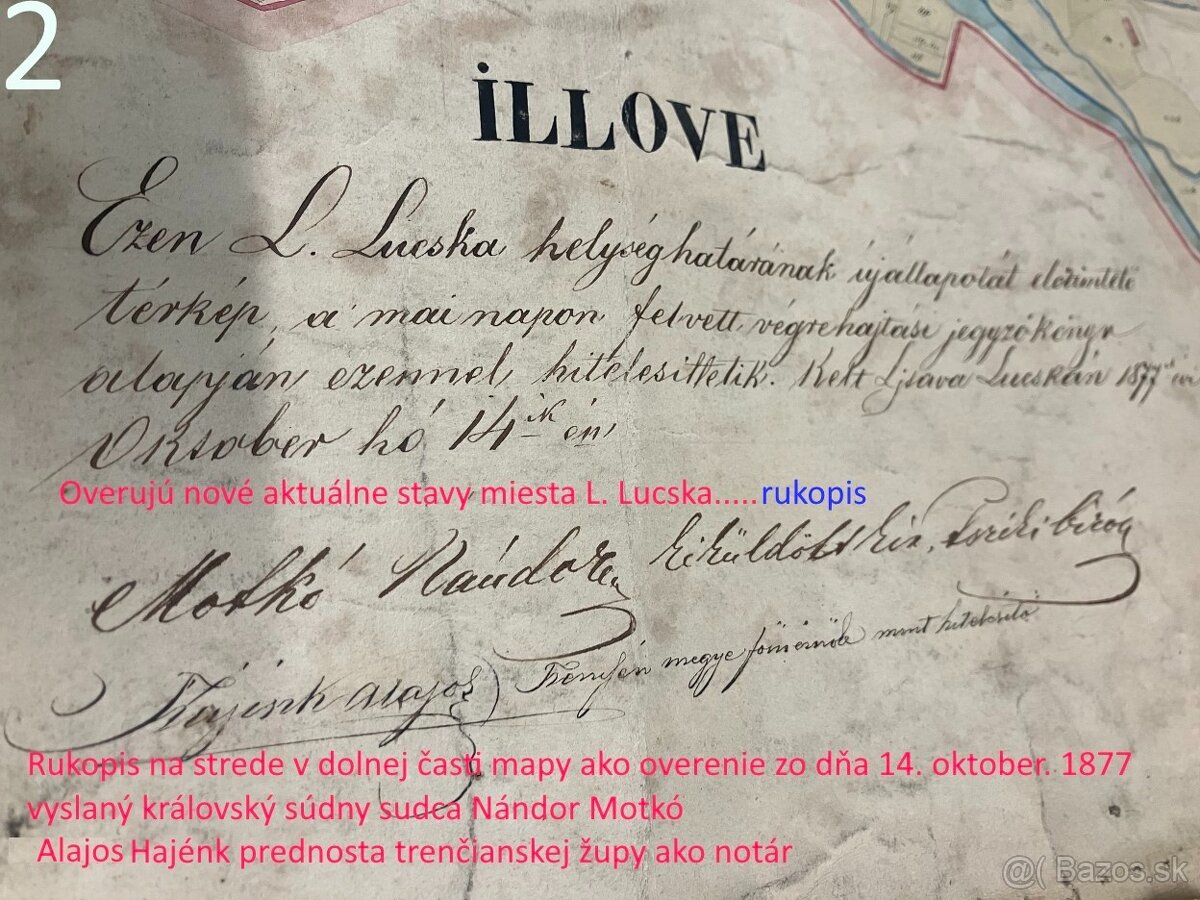 2
İLLOVE
Ezen L. Lucska helység határának új állapotát előtüntető
térkép, a mai napon felvett végrehajtási jegyzőkönyv
alapján ezennel hitelesíttetik. Kelt Ljsava Lucskán 1877
Oktober hó 14 ik én
Overujú nové aktuálne stavy miesta L. Lucska.....rukopis
Motkó Nándor kiküldött kir. bíró
Alajos Trencsén megye főmérnöke mint hitelesítő
Rukopis na strede v dolnej časti mapy ako overenie zo dňa 14. oktober. 1877
vyslaný královský súdny sudca Nándor Motkó
Alajos Hajénk prednosta trenčianskej župy ako notár
@( Bazos.sk